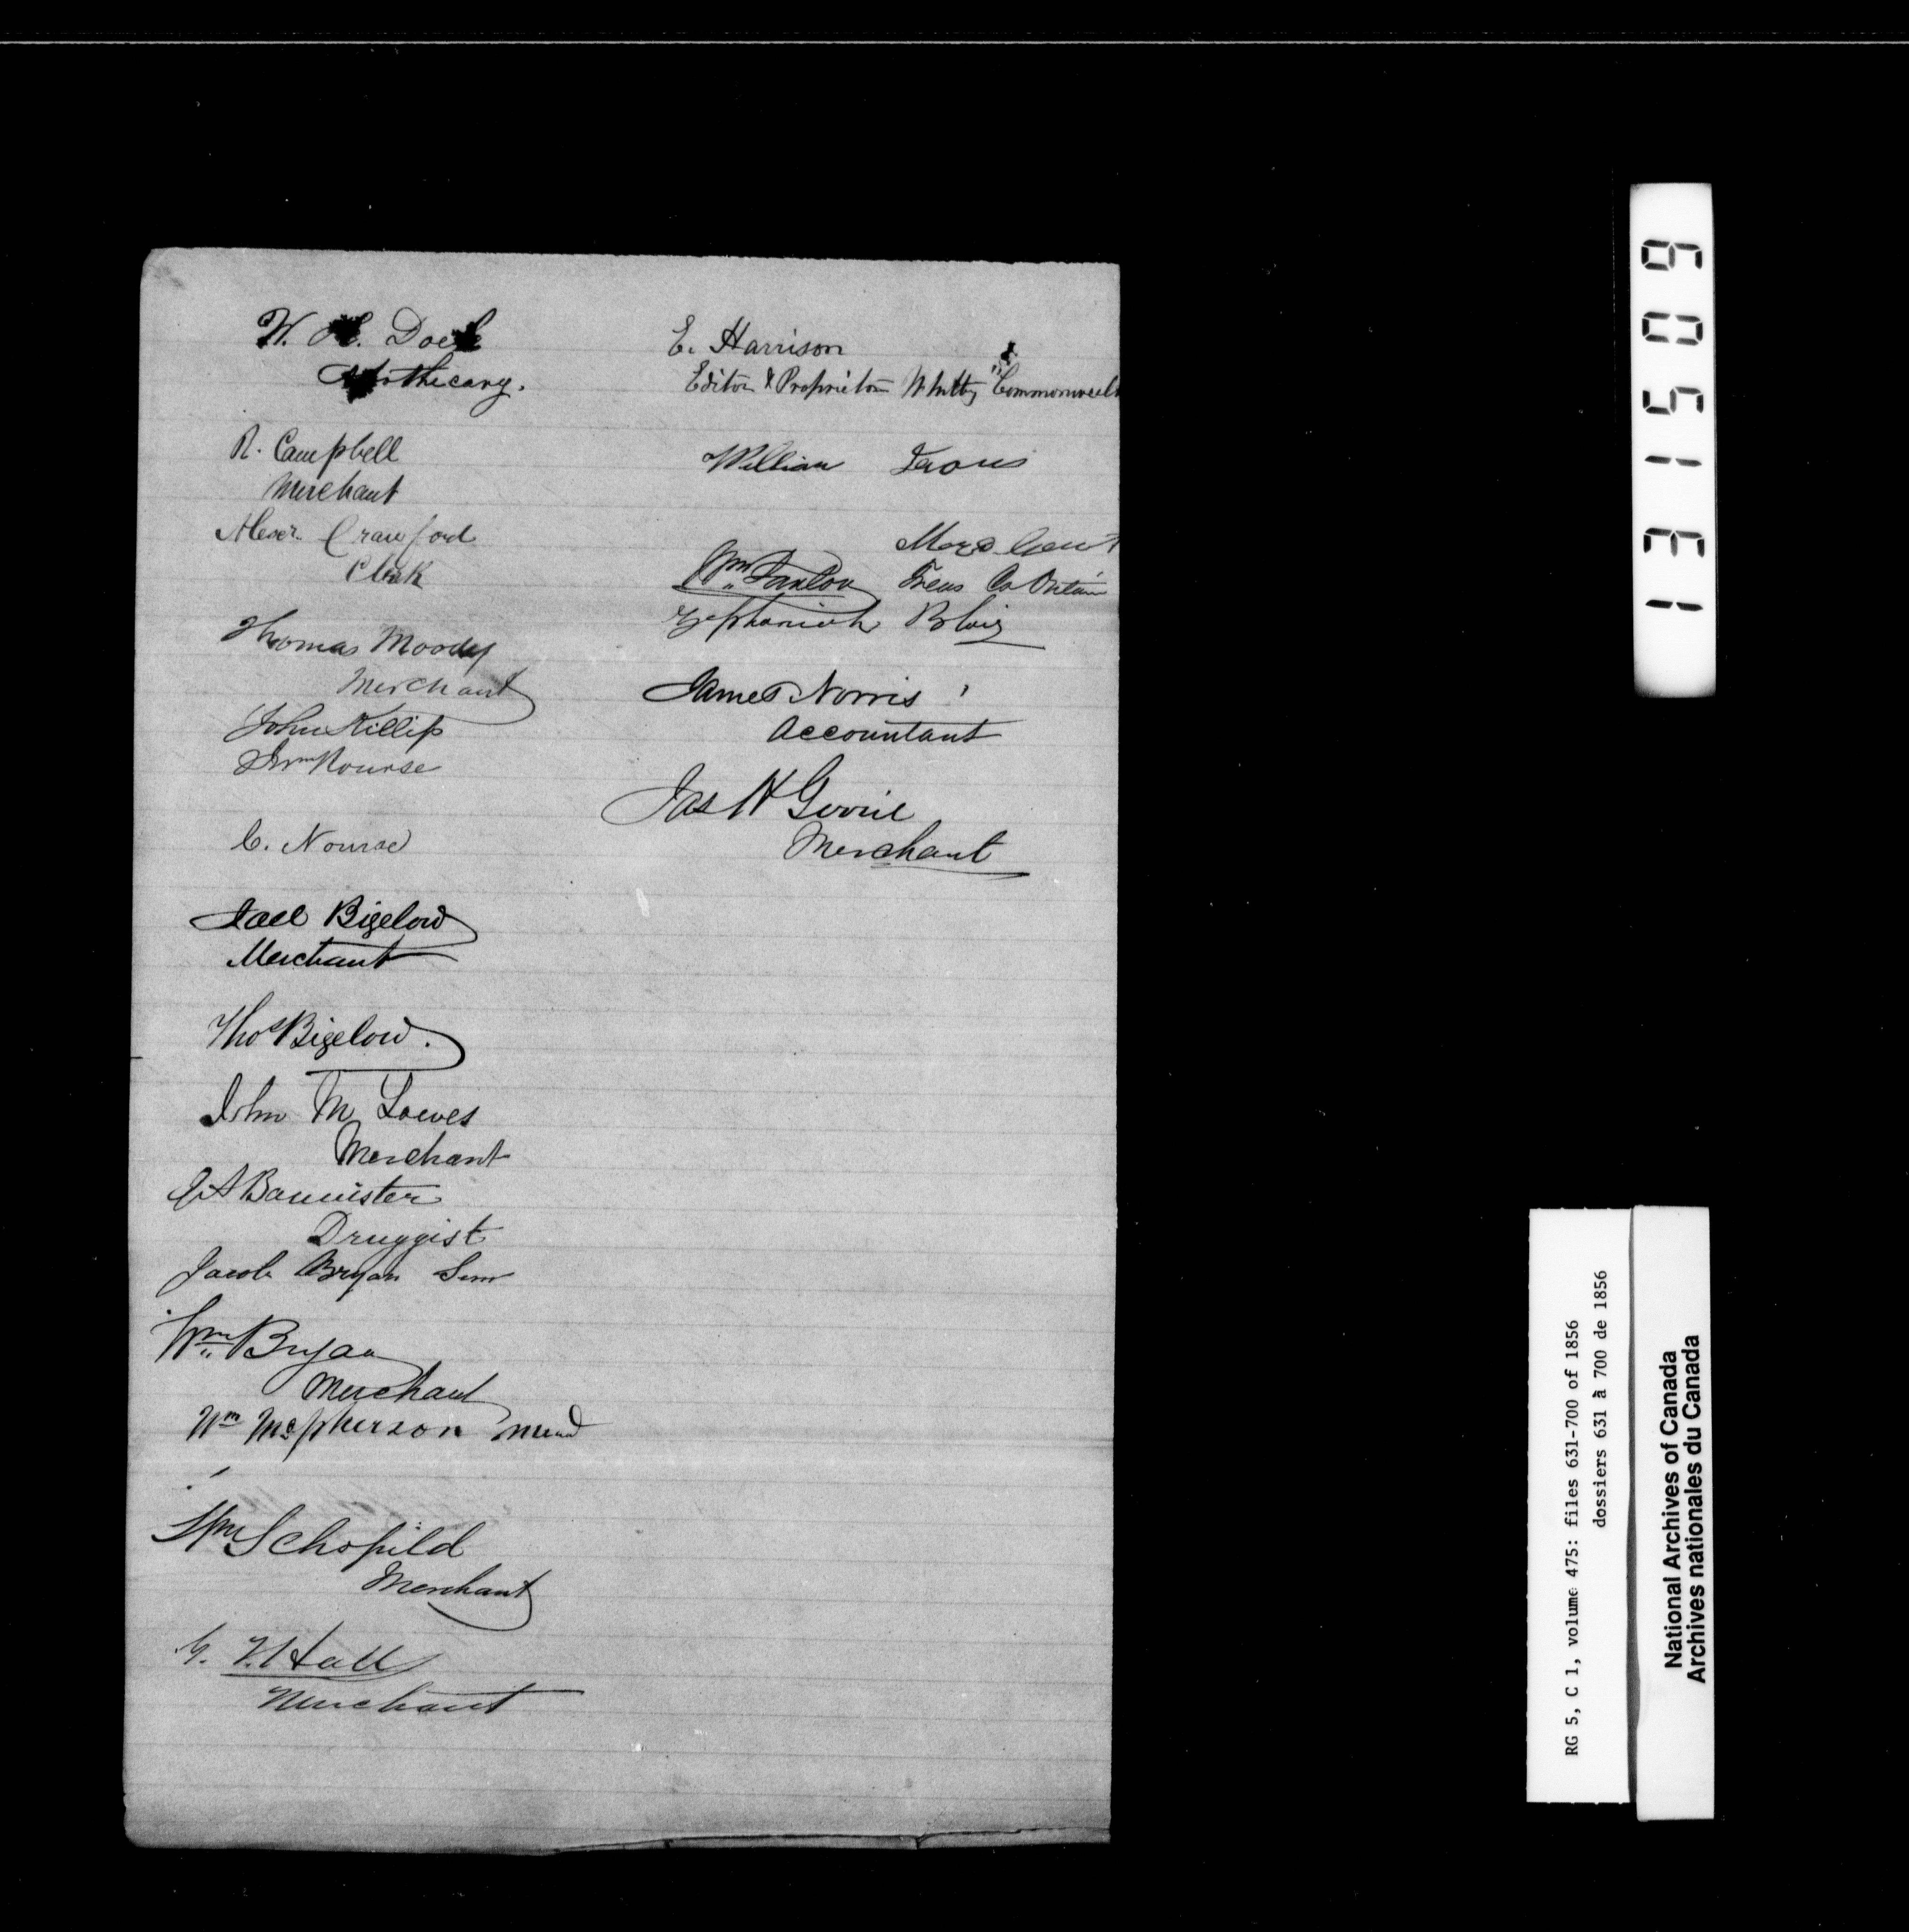 W. H. Doel
Apothecary.
R. Campbell
Merchant
Alexr. Crawford
Clerk
Thomas Moody
Merchant
John Killip
Nourse
C. Nourse
Joel Bigelow
Merchant
Thos Bigelow.
John M Lowes
Merchant
J A Bannister
Druggist
Jacob Bryan Senr
Wm Bryan
Merchant
Wm McPherson
Wm Schofield
Merchant
G. Y. Hall
Merchant
E. Harrison
Editor & Proprietor Whitby "Commonwealt
William
Merchant
Wm Paxton Treas Co Ontario
Zephaniah
James Norris
Accountant
Jas H Gerrie
Merchant
131509
RG 5, C 1, volume 475: files 631-700 of 1856
dossiers 631 à 700 de 1856
National Archives of Canada
Archives nationales du Canada